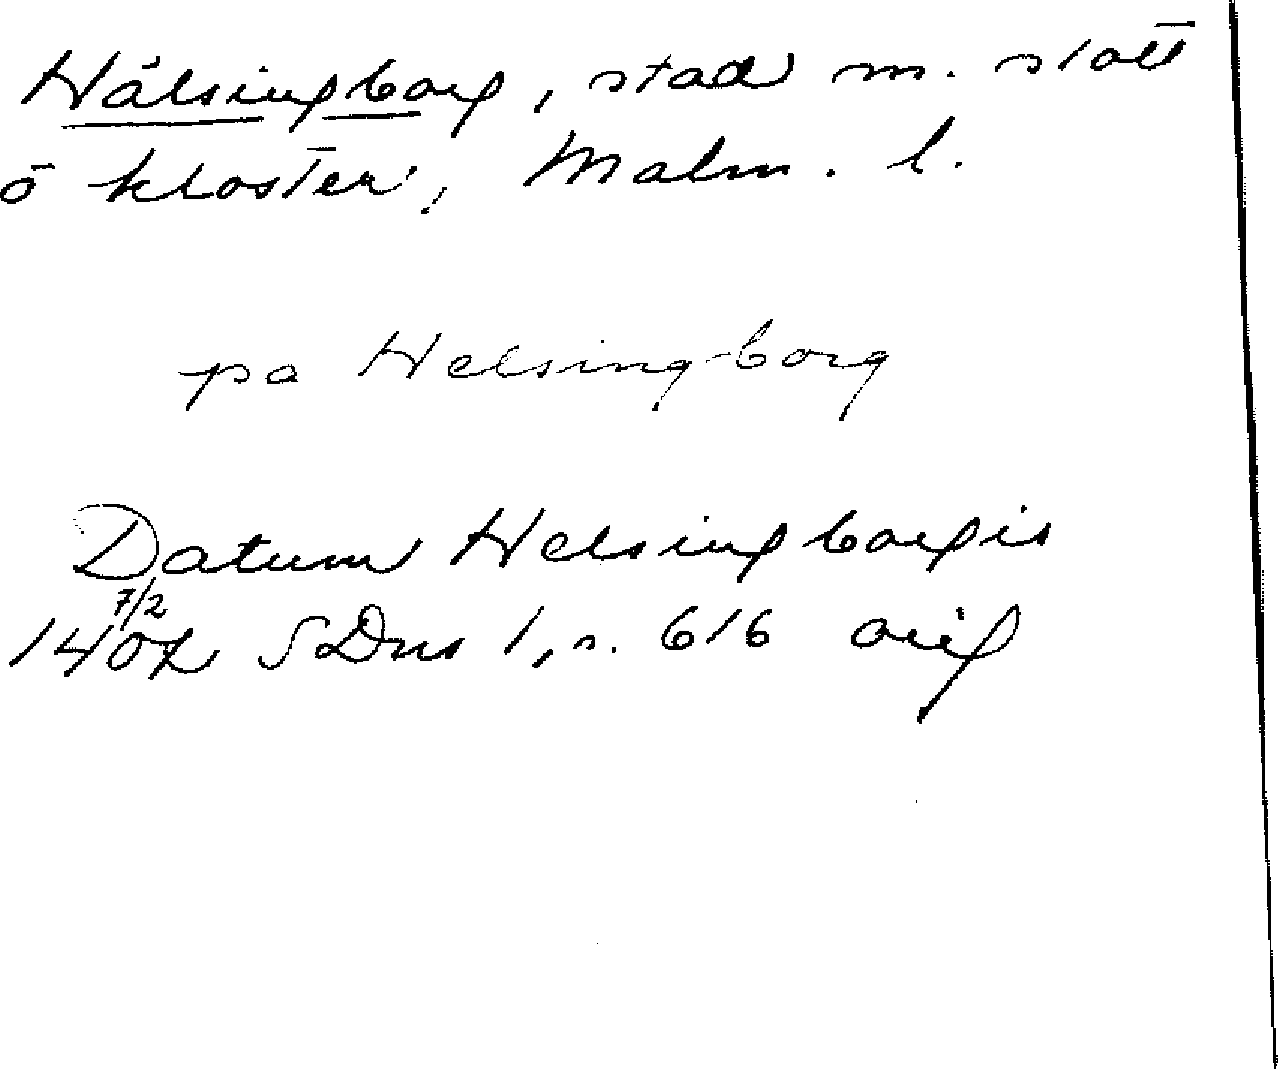 Hälsingborg, stad m. slott
o kloster, Malm. l.
pa Helsingborg
Datum Helsingborgis
7/2
1407 SDns 1, s. 616 orig